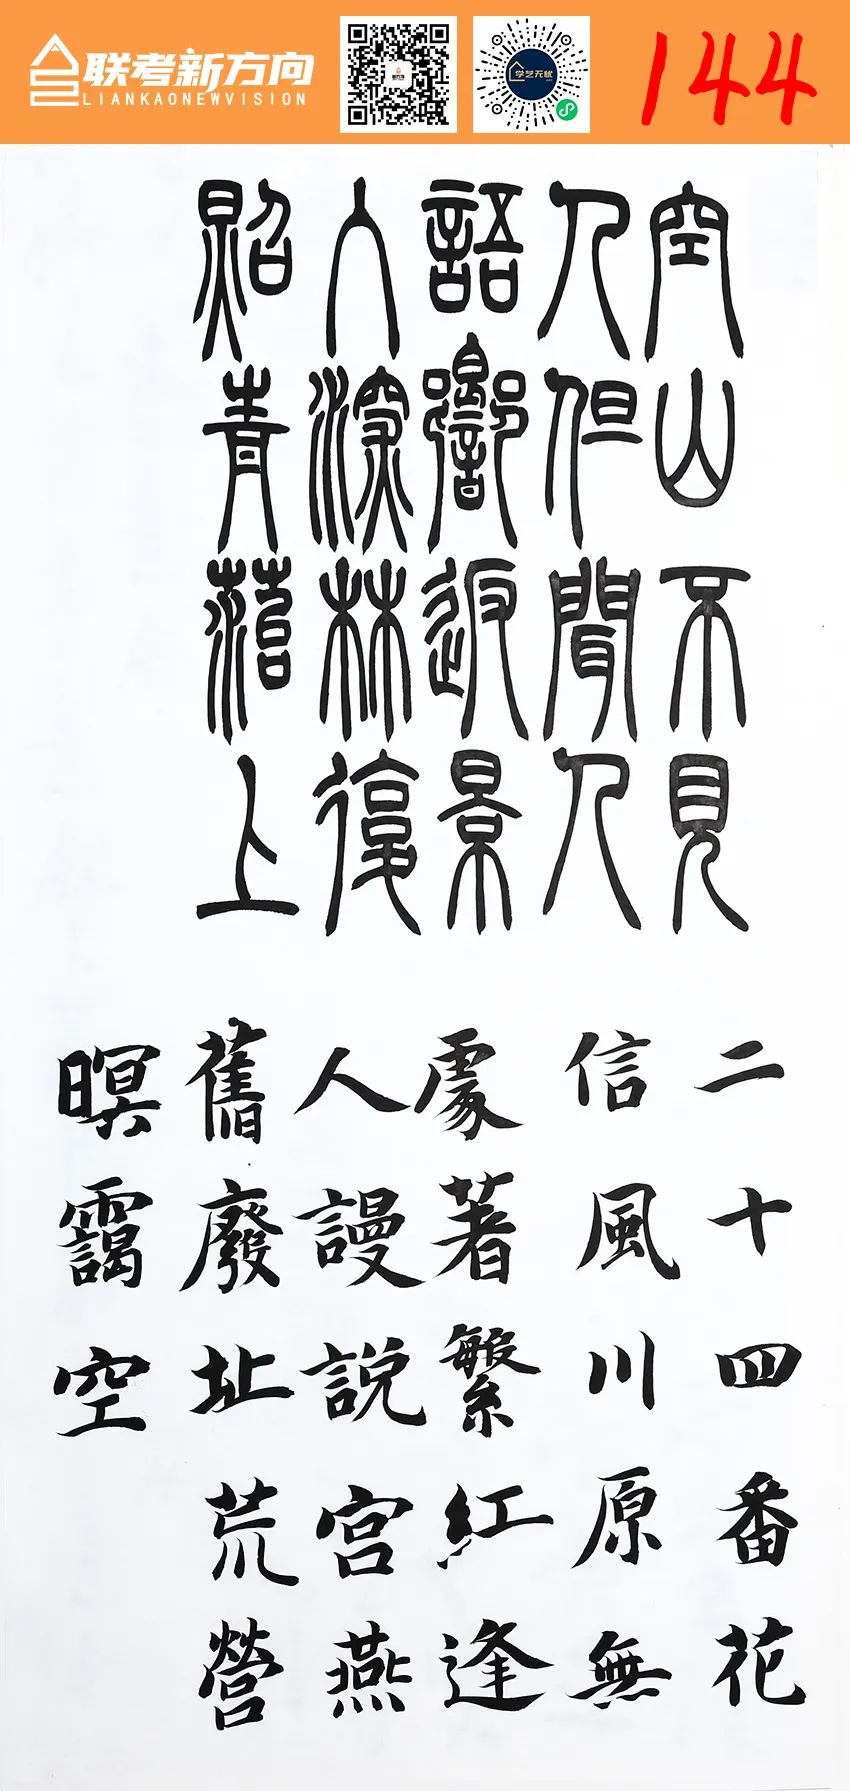 联考新方向
LIANKAONEWVISION
学艺无忧
144
空山不見
人但聞人
語響返景
入深林復
照青菭上
二十四番花
信風川原無
處著繁紅逢
人謾說宮燕
舊廢址荒營
暝靄空